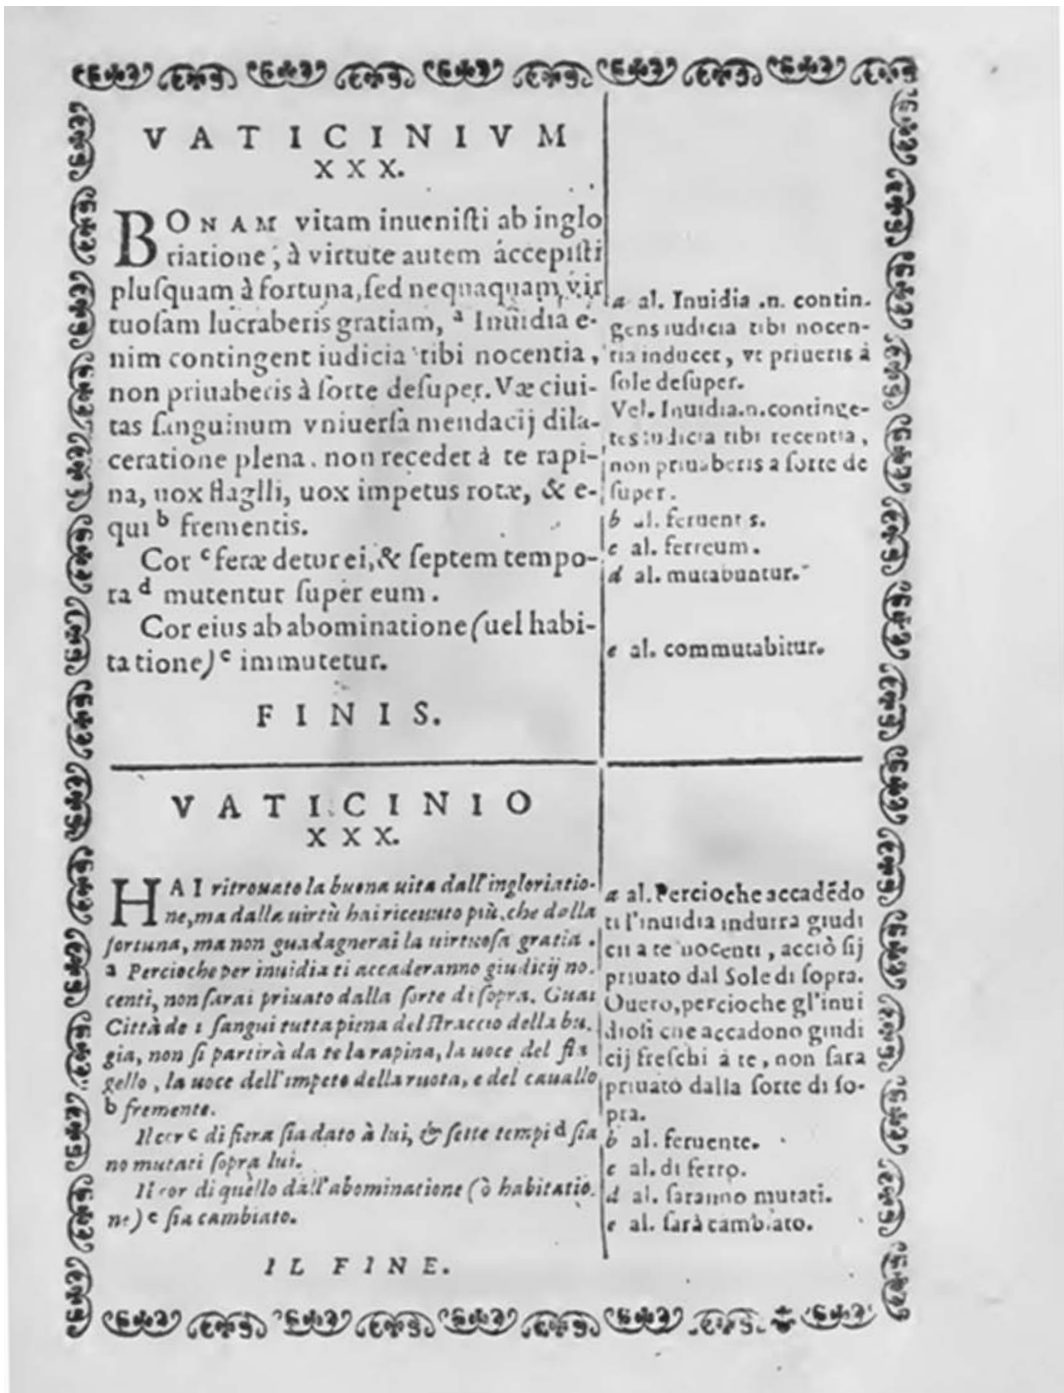 VATICINIVM
XXX.
BONAM vitam inueniſti ab inglo
riatione, à virtute autem áccepiſti
pluſquam à fortuna, ſed nequaquam vir
tuoſam lucraberis gratiam, a Inuidia e-
nim contingent iudicia tibi nocentia,
non priuaberis à ſorte deſuper. Væ ciui-
tas ſanguinum vniuerſa mendacij dila-
ceratione plena. non recedet à te rapi-
na, uox flaglli, uox impetus rotæ, & e-
qui b frementis.
Cor c feræ detur ei, & ſeptem tempo-
ra d mutentur ſuper eum.
Cor eius ab abominatione (uel habi-
tatione) e immutetur.
FINIS.
a al. Inuidia .n. contin.
gens iudicia tibi nocen-
tia inducet, vt priueris à
ſole deſuper.
Vel. Inuidia.n.continge-
tes iudicia tibi recentia,
non priuaberis a ſorte de
ſuper.
b al. feruentis.
c al. ferreum.
d al. mutabuntur.
e al. commutabitur.
VATICINIO
XXX.
HAI ritrouato la buona uita dall'ingloriatio-
ne, ma dalla uirtù hai riceuuto più, che dalla
fortuna, ma non guadagnerai la uirtuoſa gratia.
a Percioche per inuidia ti accaderanno giudicij no.
centi, non ſarai priuato dalla ſorte di ſopra. Guai
Città de i ſangui tutta piena del ſtraccio della bu.
gia, non ſi partirà da te la rapina, la uoce del fla
gello, la uoce dell'impeto della ruota, e del cauallo
b fremente.
Il cor c di fiera ſia dato à lui, & ſette tempi d ſia
no mutati ſopra lui.
Il cor di quello dall'abominatione (ò habitatio.
ne) e ſia cambiato.
IL FINE.
a al. Percioche accadẽdo
ti l'inuidia indurra giudi
cii a te nocenti, acciò ſij
priuato dal Sole di ſopra.
Ouero, percioche gl'inui
dioſi che accadono giudi
cij freſchi à te, non ſara
priuato dalla ſorte di ſo-
pra.
b al. feruente.
c al. di ferro.
d al. ſaranno mutati.
e al. ſarà cambiato.